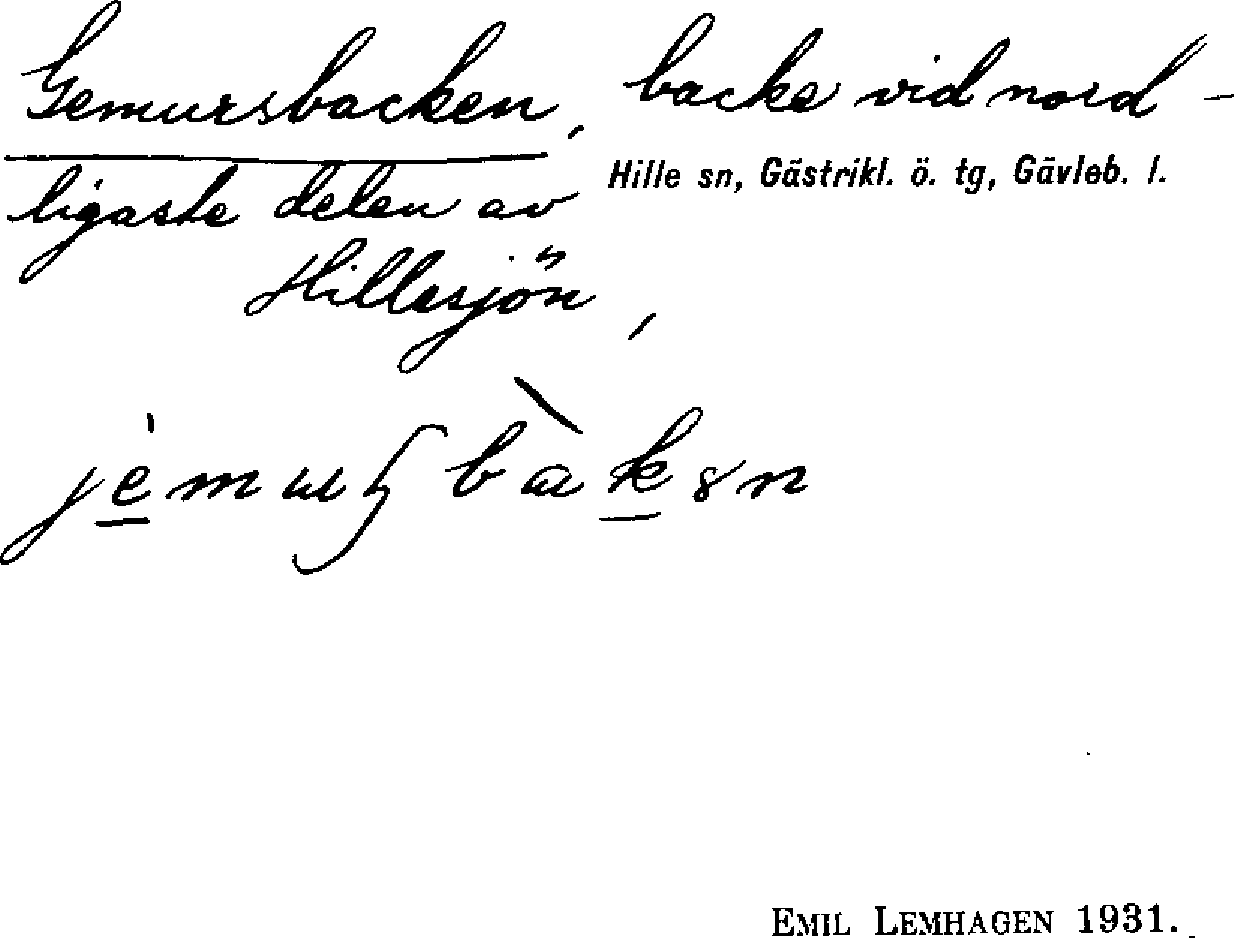 Gemursbacken, backe vid nord-
Hille sn, Gästrikl. ö. tg, Gävleb. l.
ligaste delen av
Hillesjön,
EMIL LEMHAGEN 1931.